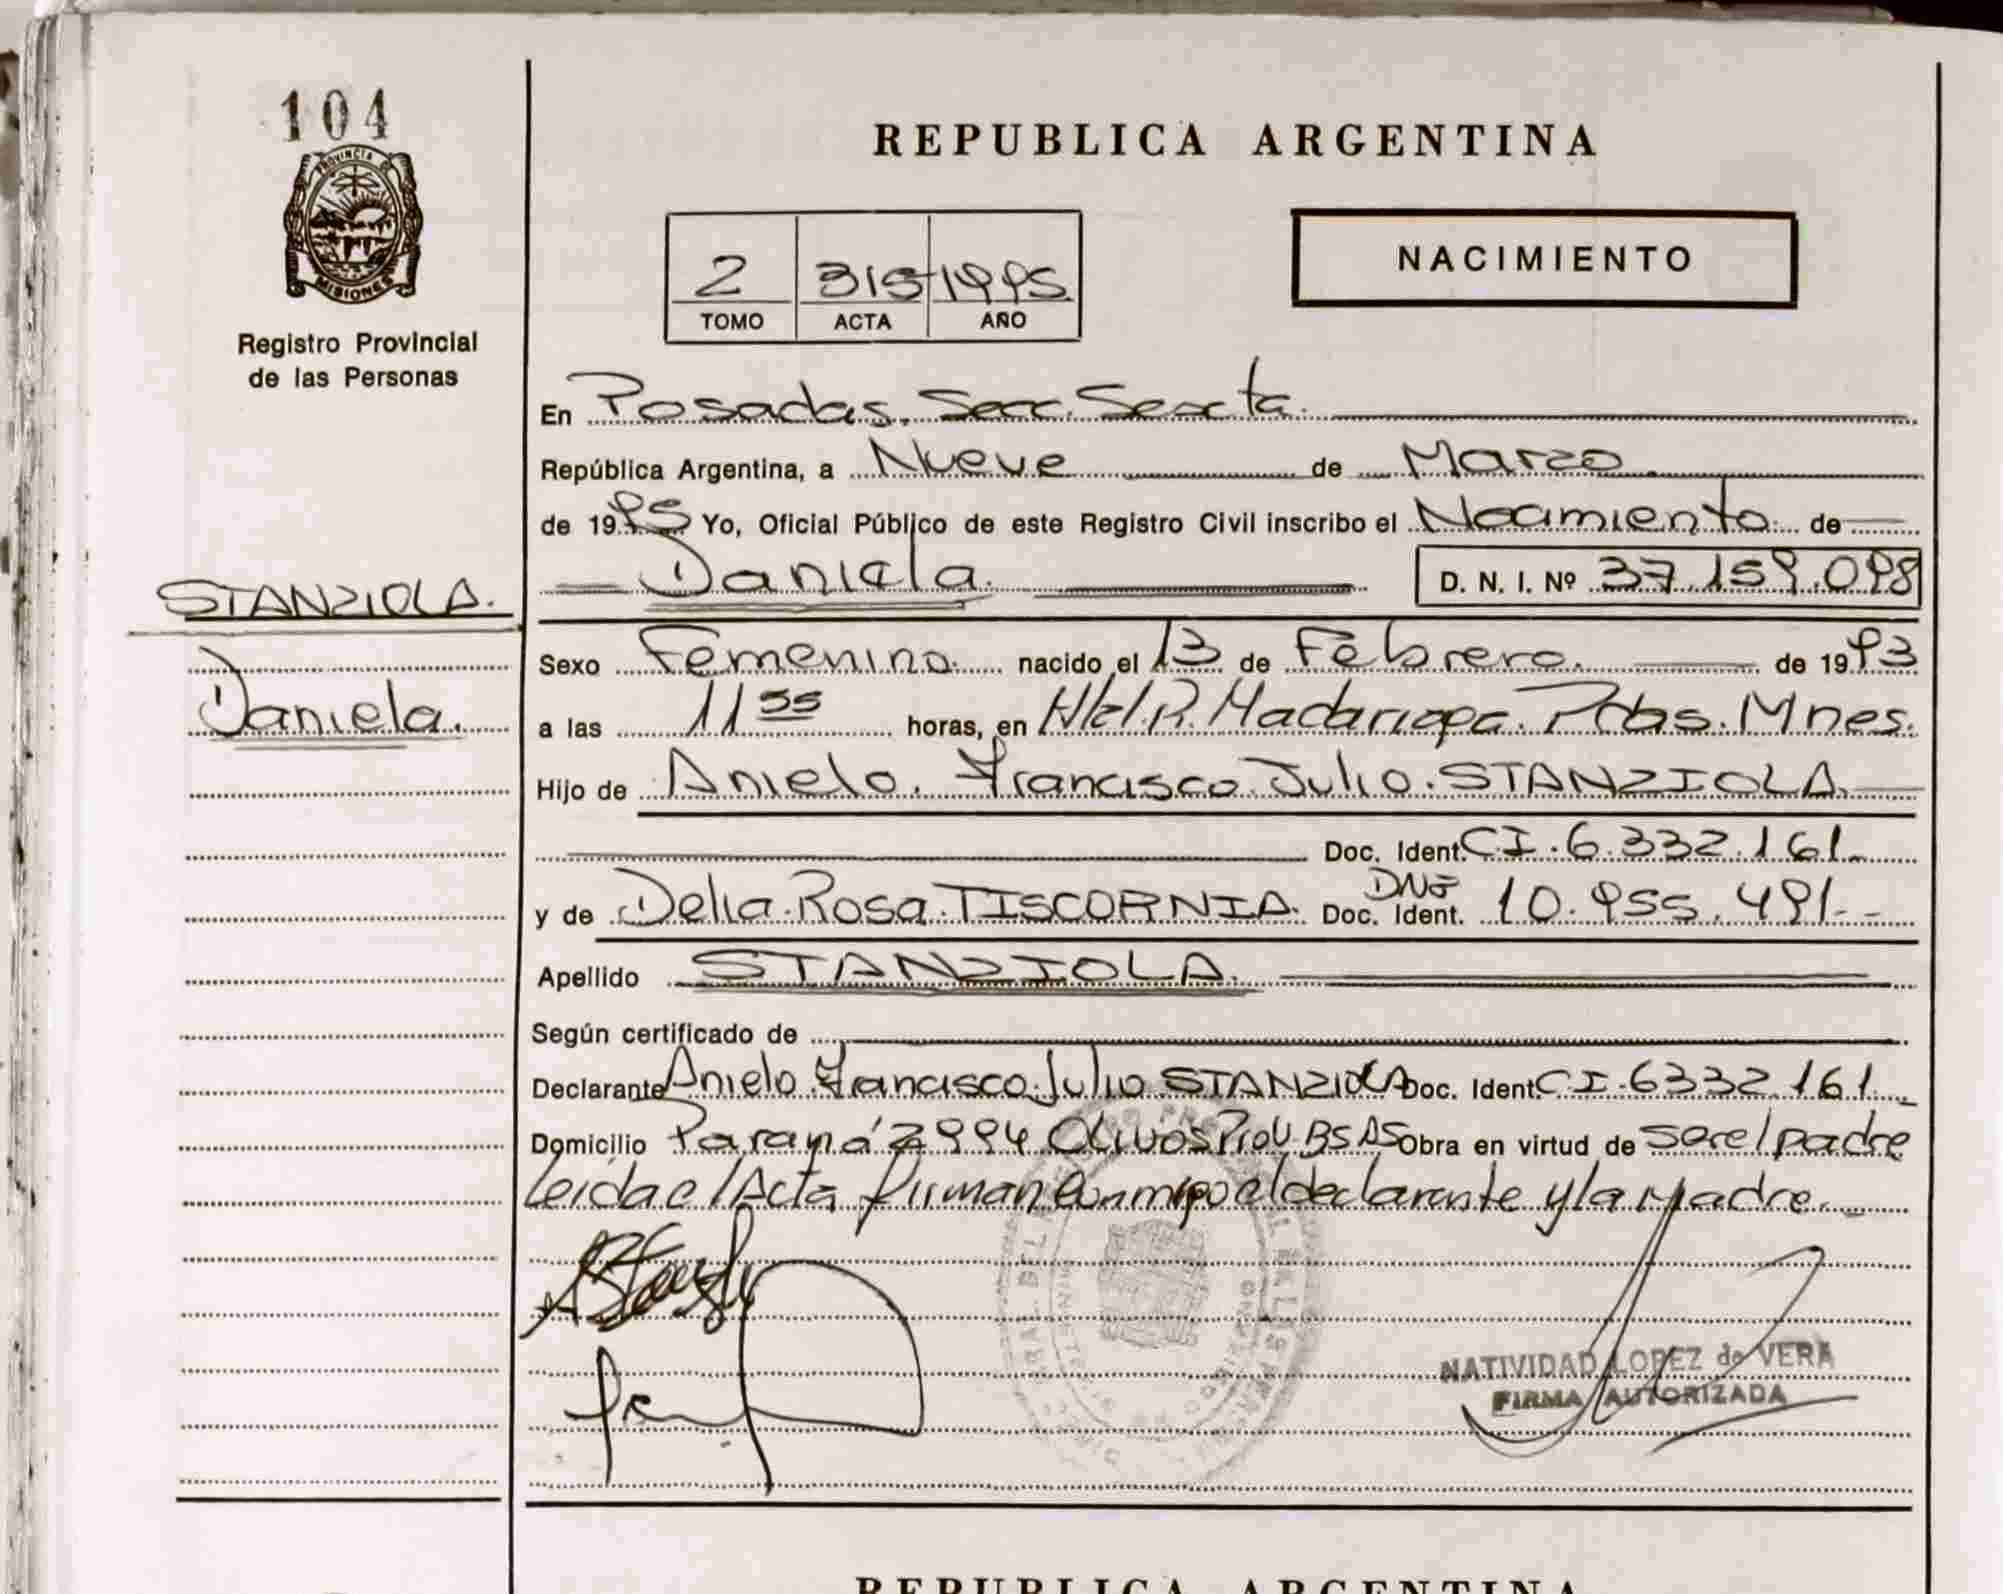 104
PROVINCIA DE
MISIONES
Registro Provincial
de las Personas
STANZIOLA.
Daniela.
REPUBLICA ARGENTINA
NACIMIENTO
2 315 1995
TOMO ACTA AÑO
En Posadas. Secc. Sexta.
República Argentina, a Nueve de Marzo
de 1995 Yo, Oficial Público de este Registro Civil inscribo el Nacimiento de
Daniela. D. N. I. Nº 37.159.098
Sexo Femenino. nacido el 13 de Febrero. de 1993
a las 11 55 horas, en Htal. R. Madariaga. Pdas. Mnes.
Hijo de Anielo. Francisco Julio. STANZIOLA.
Doc. Ident. CI. 6.332.161-
y de Delia. Rosa. TISCORNIA. Doc. Ident. DNI 10.955.491--
Apellido STANZIOLA.
Según certificado de
Declarante Anielo Francisco Julio STANZIOLA Doc. Ident. CI. 6332.161.
Domicilio Paraná 2994 Olivos Prov. BS AS Obra en virtud de ser el padre
leida el Acta firman conmigo el declarante y la Madre.
NATIVIDAD LOPEZ de VERA
FIRMA AUTORIZADA
REPUBLICA ARGENTINA